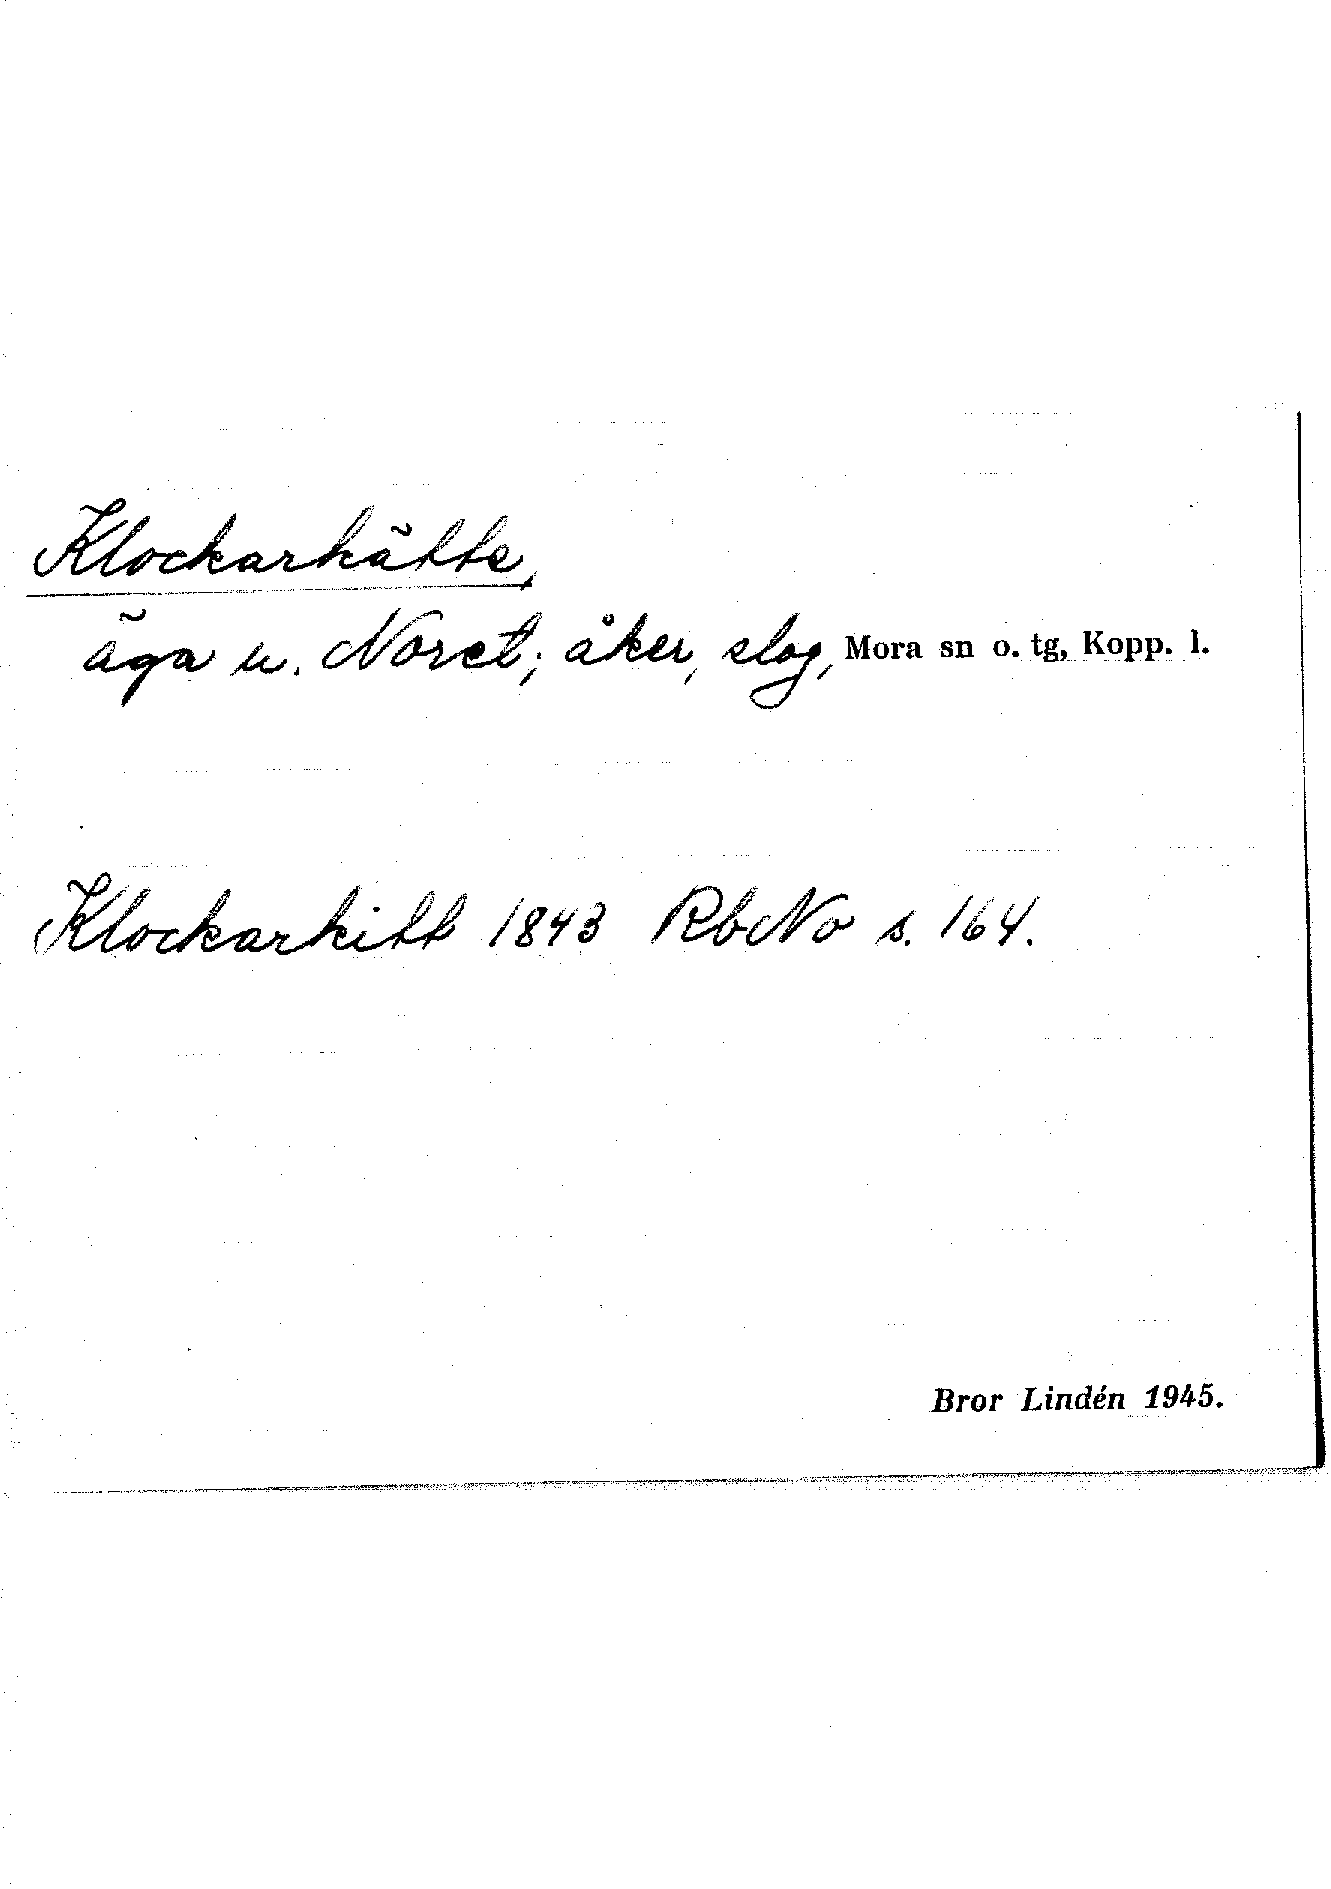 Klockarkätte,
äga u. Noret; åker, slog, Mora sn o. tg, Kopp. l.
Klockarkitt 1843 RbNo s. 164.
Bror Lindén 1945.